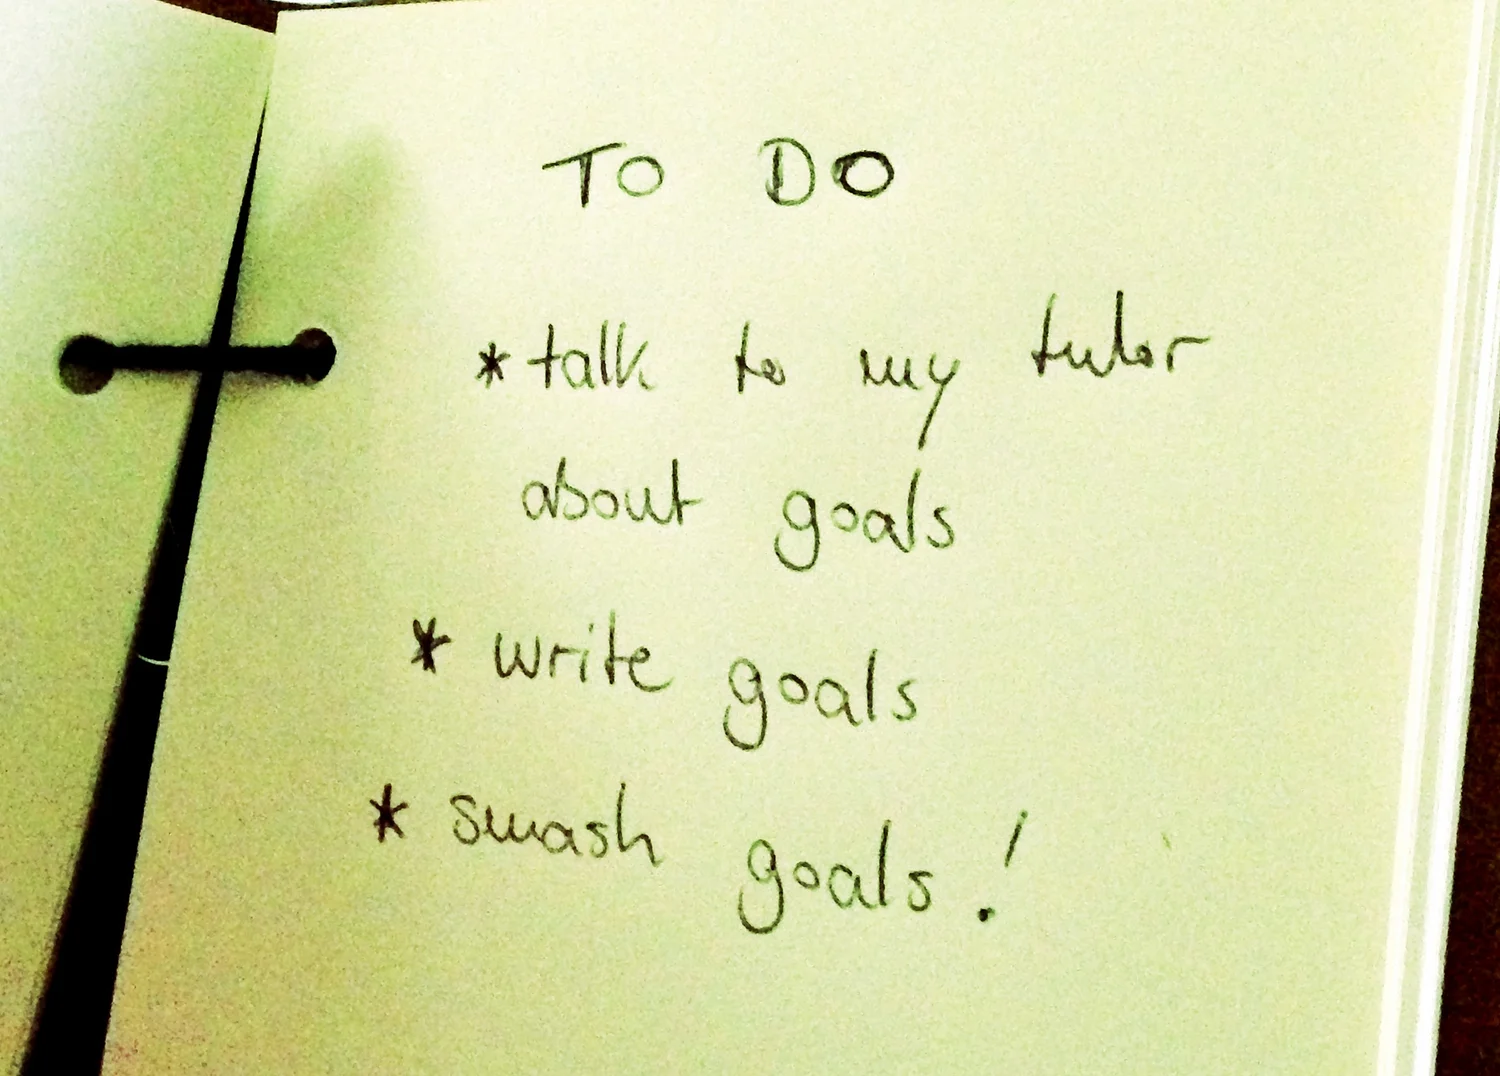 TO DO
* talk to my tutor
about goals
* write goals
* smash goals!